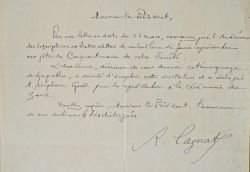 Monsieur le Président,
Par une lettre en date du 23 mars, vous avez prié l'Académie
des Inscriptions et belles lettres de vouloir bien se faire représenter
aux fêtes du Cinquantenaire de votre Société.
L'Académie, désireuse de vous donner un témoignage
de sympathie, a décidé d'accepter cette invitation et a délégué
M. pour la représenter à la cérémonie du
Veuillez agréer, Monsieur le Président, l'assurance
de mes sentiments très distingués.
R. Cagnat